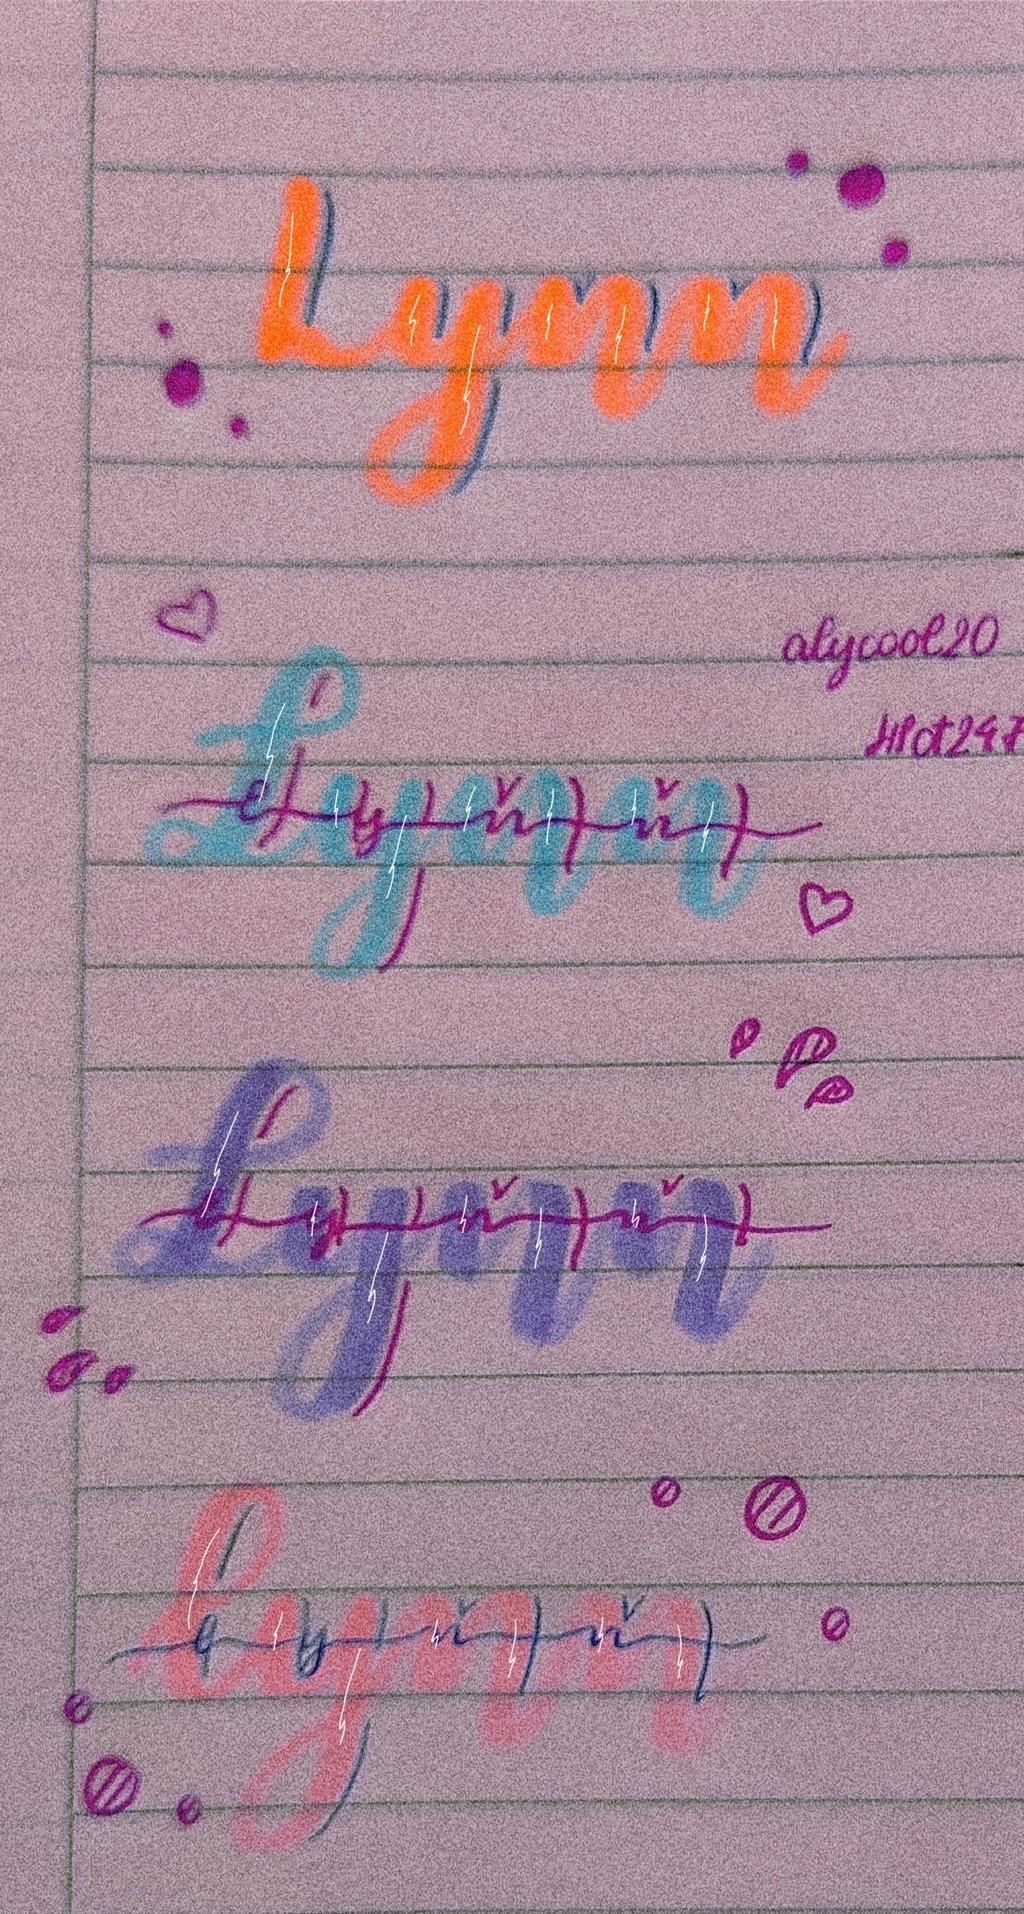 Lynn
alycool20
Lynn
Lynn
Lynn